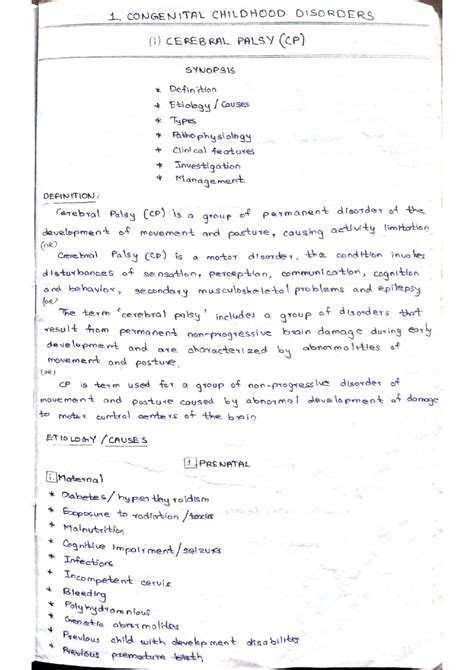 1. CONGENITAL CHILDHOOD DISORDERS
(i) CEREBRAL PALSY (CP)
SYNOPSIS
* Definition
* Etiology / Causes
* Types
* Pathophysiology
* Clinical features
* Investigation
* Management
DEFINITION:
Cerebral Palsy (CP) is a group of permanent disorder of the
development of movement and posture, causing activity limitation
(OR)
Cerebral Palsy (CP) is a motor disorder, the condition involves
disturbances of sensation, perception, communication, cognition
and behavior, secondary musculoskeletal problems and epilepsy
(OR)
The term 'cerebral palsy' includes a group of disorders that
result from permanent non-progressive brain damage during early
development and are characterized by abnormalities of
movement and posture.
(OR)
CP is term used for a group of non-progressive disorder of
movement and posture caused by abnormal development of damage
to motor control centers of the brain
ETIOLOGY / CAUSES
1 PRENATAL
i. Maternal
* Diabetes / hyperthyroidism
* Exposure to radiation / toxics
* Malnutrition
* Cognitive Impairment / seizures
* Infections
* Incompetent cervix
* Bleeding
* Polyhydramnious
* Genetic abnormalities
* Previous child with development disabilities
* Previous premature birth